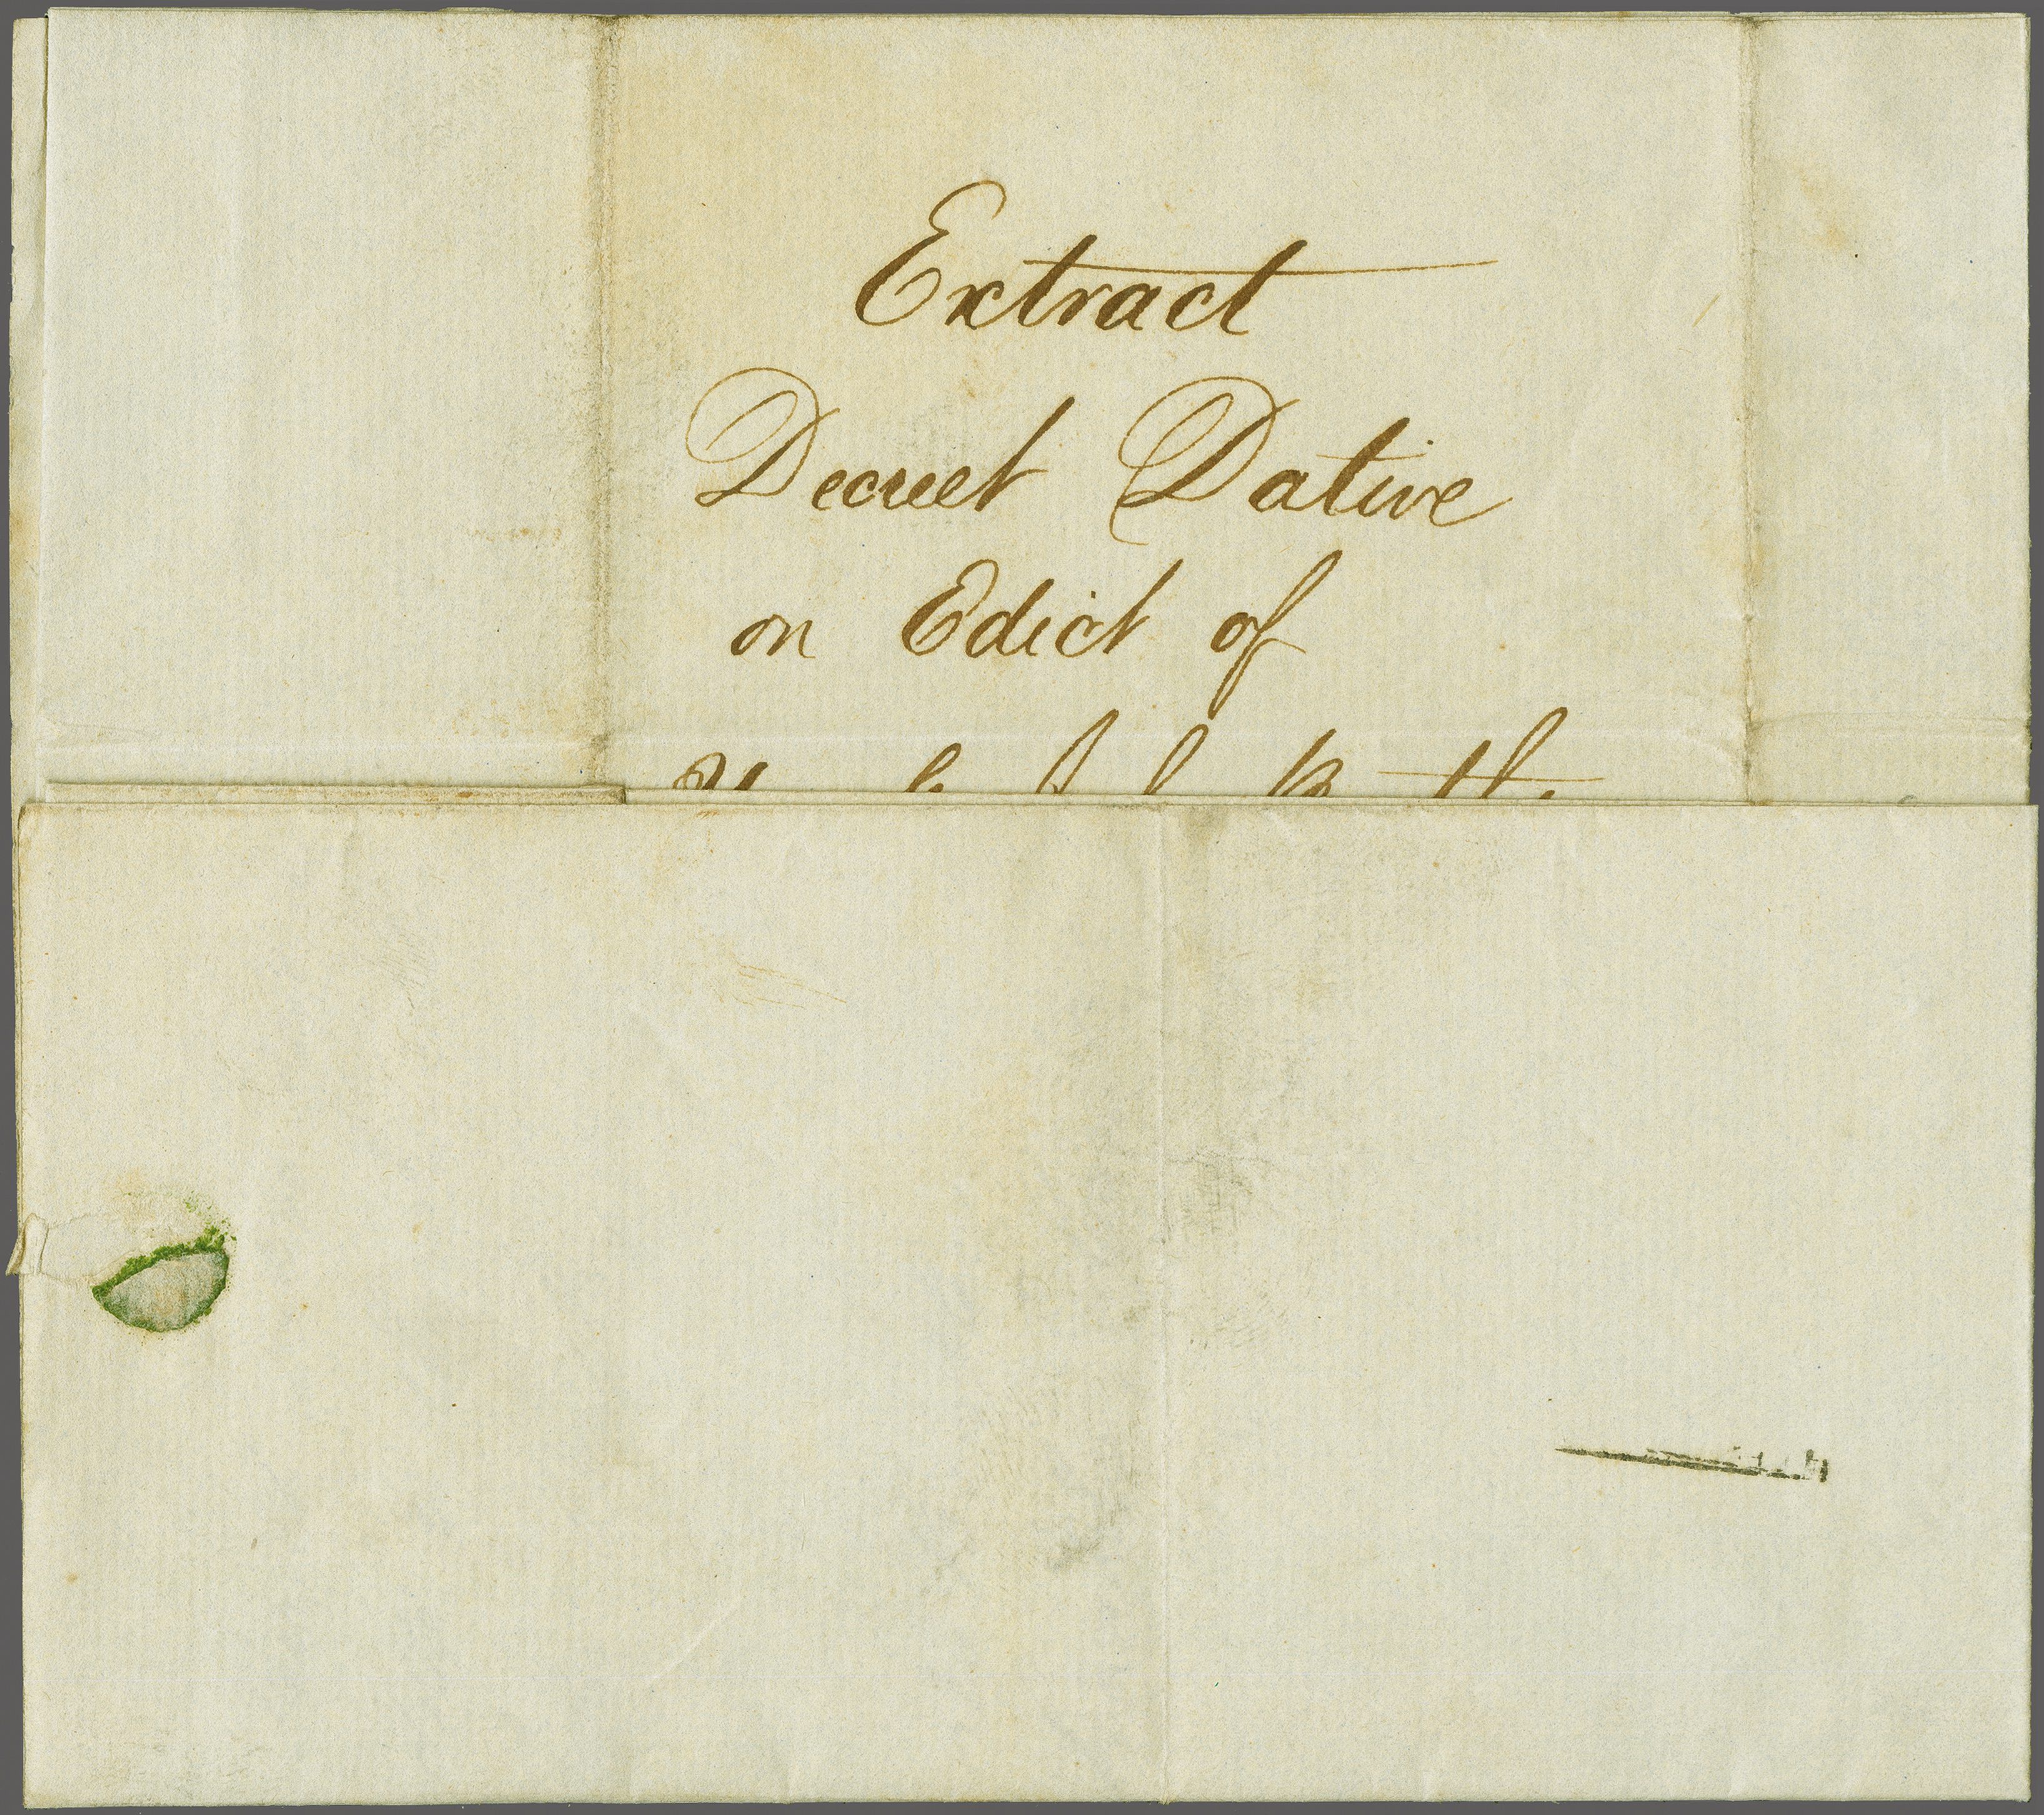 Extract
Decreet Dative
on Edict of